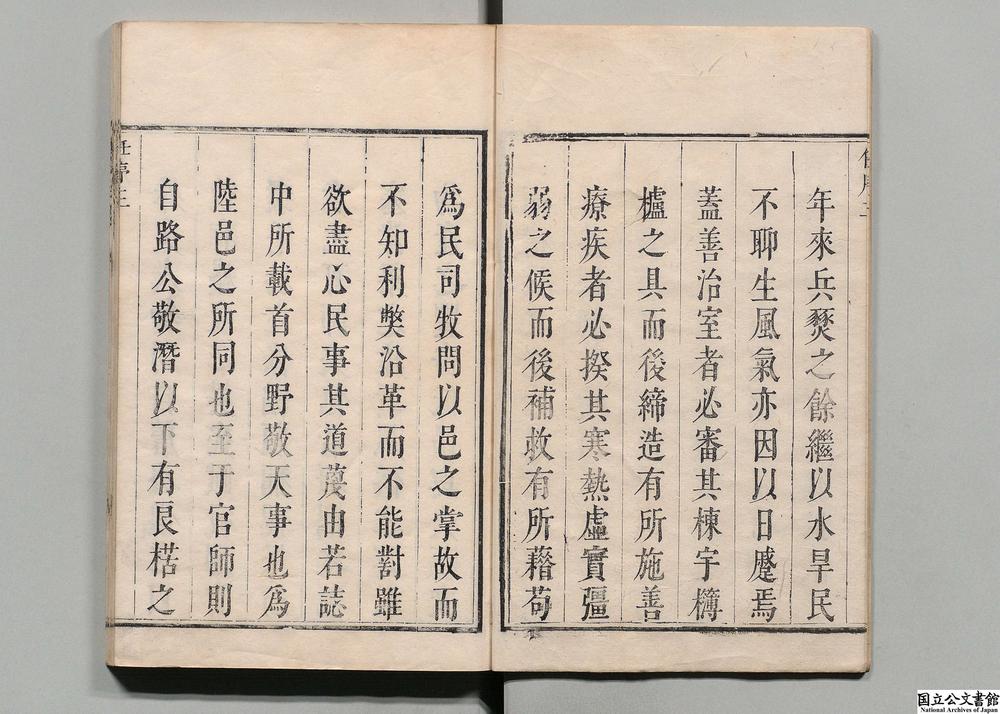 年來兵燹之餘繼以水旱民
不聊生風氣亦因以日蹙焉
蓋善治室者必審其棟宇欂
櫨之具而後締造有所施善
療疾者必揆其寒熱虛實彊
弱之候而後補救有所藉苟
爲民司牧問以邑之掌故而
不知利獘沿革而不能對雖
欲盡心民事其道蔑由若誌
中所載首分野敬天事也爲
陸邑之所同也至于官師則
自路公敬潛以下有艮楛之
國立公文書館
National Archives of Japan